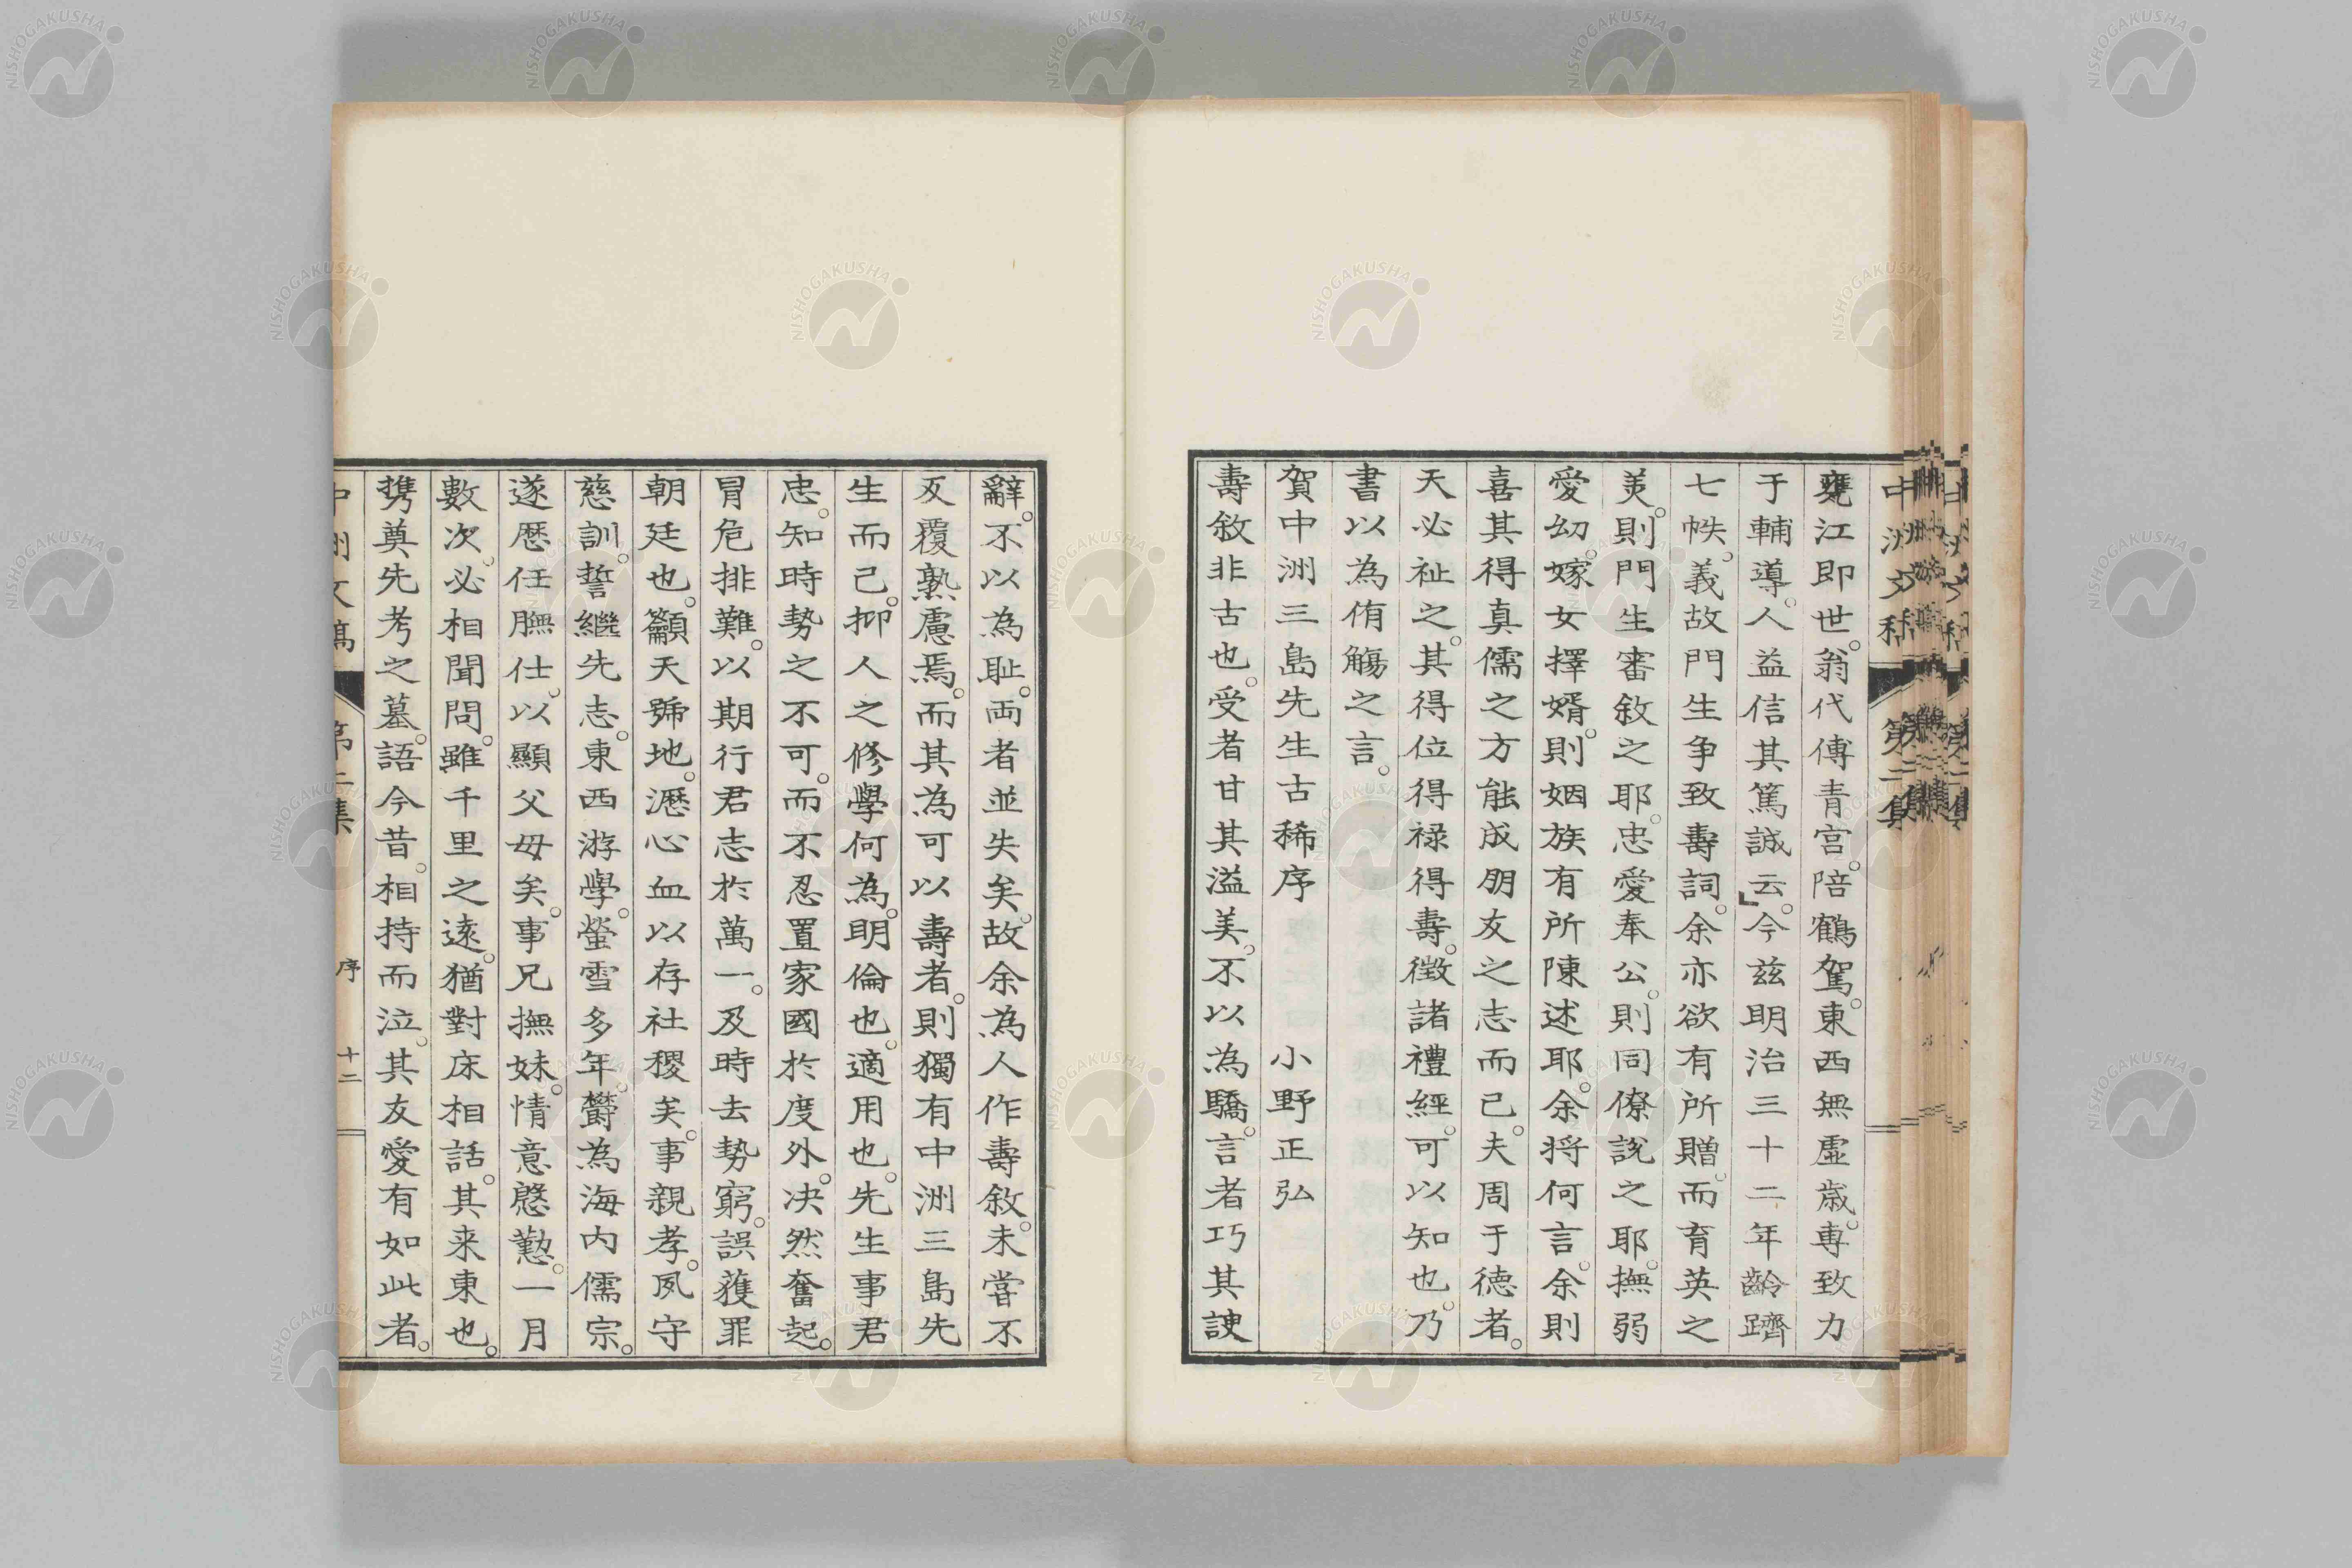 甕江即世。翁代傅青宮。陪鶴駕。東西無虛歳。專致力
于輔導。人益信其篤誠云。」今茲明治三十二年齡躋
七帙。義故門生爭致壽詞。余亦欲有所贈。而育英之
美。則門生審敘之耶。忠愛奉公。則同僚説之耶。撫弱
愛幼。嫁女擇婿。則姻族有所陳述耶。余将何言。余則
喜其得真儒之方能成朋友之志而已。夫周于德者。
天必祉之。其得位得祿得壽。徵諸禮經。可以知也。乃
書以為侑觴之言。
賀中洲三島先生古稀序 小野正弘
壽敘非古也。受者甘其溢美。不以為驕。言者巧其諛
辭。不以為耻。両者並失矣。故余為人作壽敘。未嘗不
反覆熟慮焉。而其為可以壽者。則獨有中洲三島先
生而已。抑人之修學何為。明倫也。適用也。先生事君
忠。知時勢之不可。而不忍置家國於度外。决然奮起。
冒危排難。以期行君志於萬一。及時去勢窮。誤獲罪
朝廷也。籲天號地。瀝心血以存社稷矣。事親孝。夙守
慈訓。誓繼先志。東西游學。螢雪多年。欝為海內儒宗。
遂歷任膴仕。以顯父母矣。事兄撫妹。情意慇懃。一月
數次。必相聞問。雖千里之遠。猶對床相話。其来東也。
携奠先考之墓。語今昔。相持而泣。其友愛有如此者。
中洲文稿 第二集 序 十二